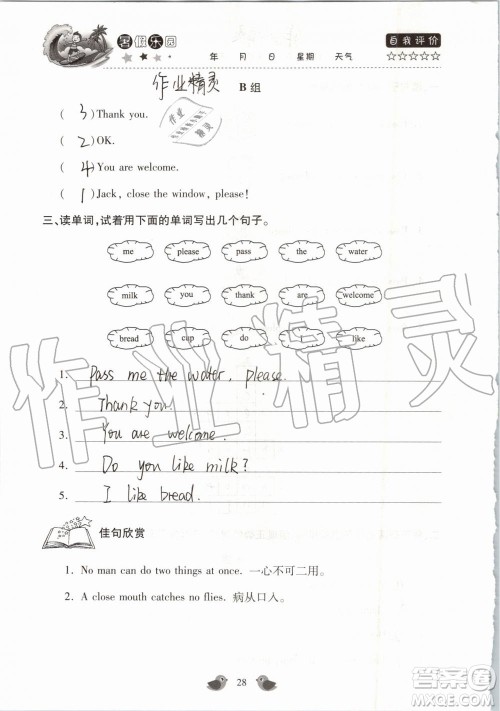 暑假乐园
年 月 日 星期 天气
自我评价
作业精灵
B 组
( 3 ) Thank you.
( 2 ) OK.
( 4 ) You are welcome.
( 1 ) Jack, close the window, please!
三、读单词,试着用下面的单词写出几个句子。
me please pass the water
milk you thank are welcome
bread cup do I like
1. Pass me the water, please.
2. Thank you.
3. You are welcome.
4. Do you like milk?
5. I like bread.
作业精灵
佳句欣赏
1. No man can do two things at once. 一心不可二用。
2. A close mouth catches no flies. 病从口入。
28
答案圈
MXQE.COM